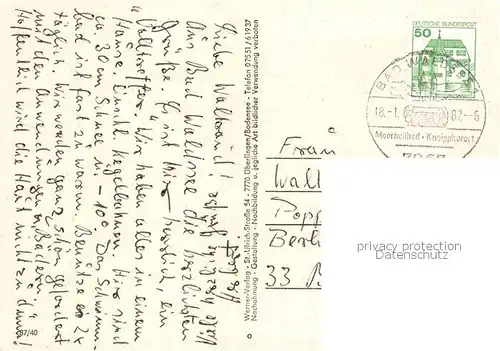 Liebe Waltraud!
Aus Bad Waldsee die herzlichsten
Grüße. Es ist hier herrlich, ein
Volltreffer. Wir haben alles in einem
Hause. Einschl. Kegelbahnen. Hier sind
ca. 30 cm Schnee u. - 10°. Das Schwimm-
bad ist fast zu warm. Benützen 2x
täglich. Wir werden ganz schön gefordert
mit den Anwendungen u. Bädern.
Hoffentlich wird die Haut nicht zu dünn!
Viele herzl.
87/40
Werner-Verlag · St.-Ulrich-Straße 54 · 7770 Überlingen/Bodensee · Telefon 07551/61937
Nachahmung · Gestaltung · Nachbildung u. jegliche Art bildlicher Verwendung verboten
DEUTSCHE BUNDESPOST
50
BAD WALDSEE
18.-1. 82--6
Moorheilbad · Kneippkurort
7967
Frau
Walt
Popp
Berli
33
privacy protection
watermark